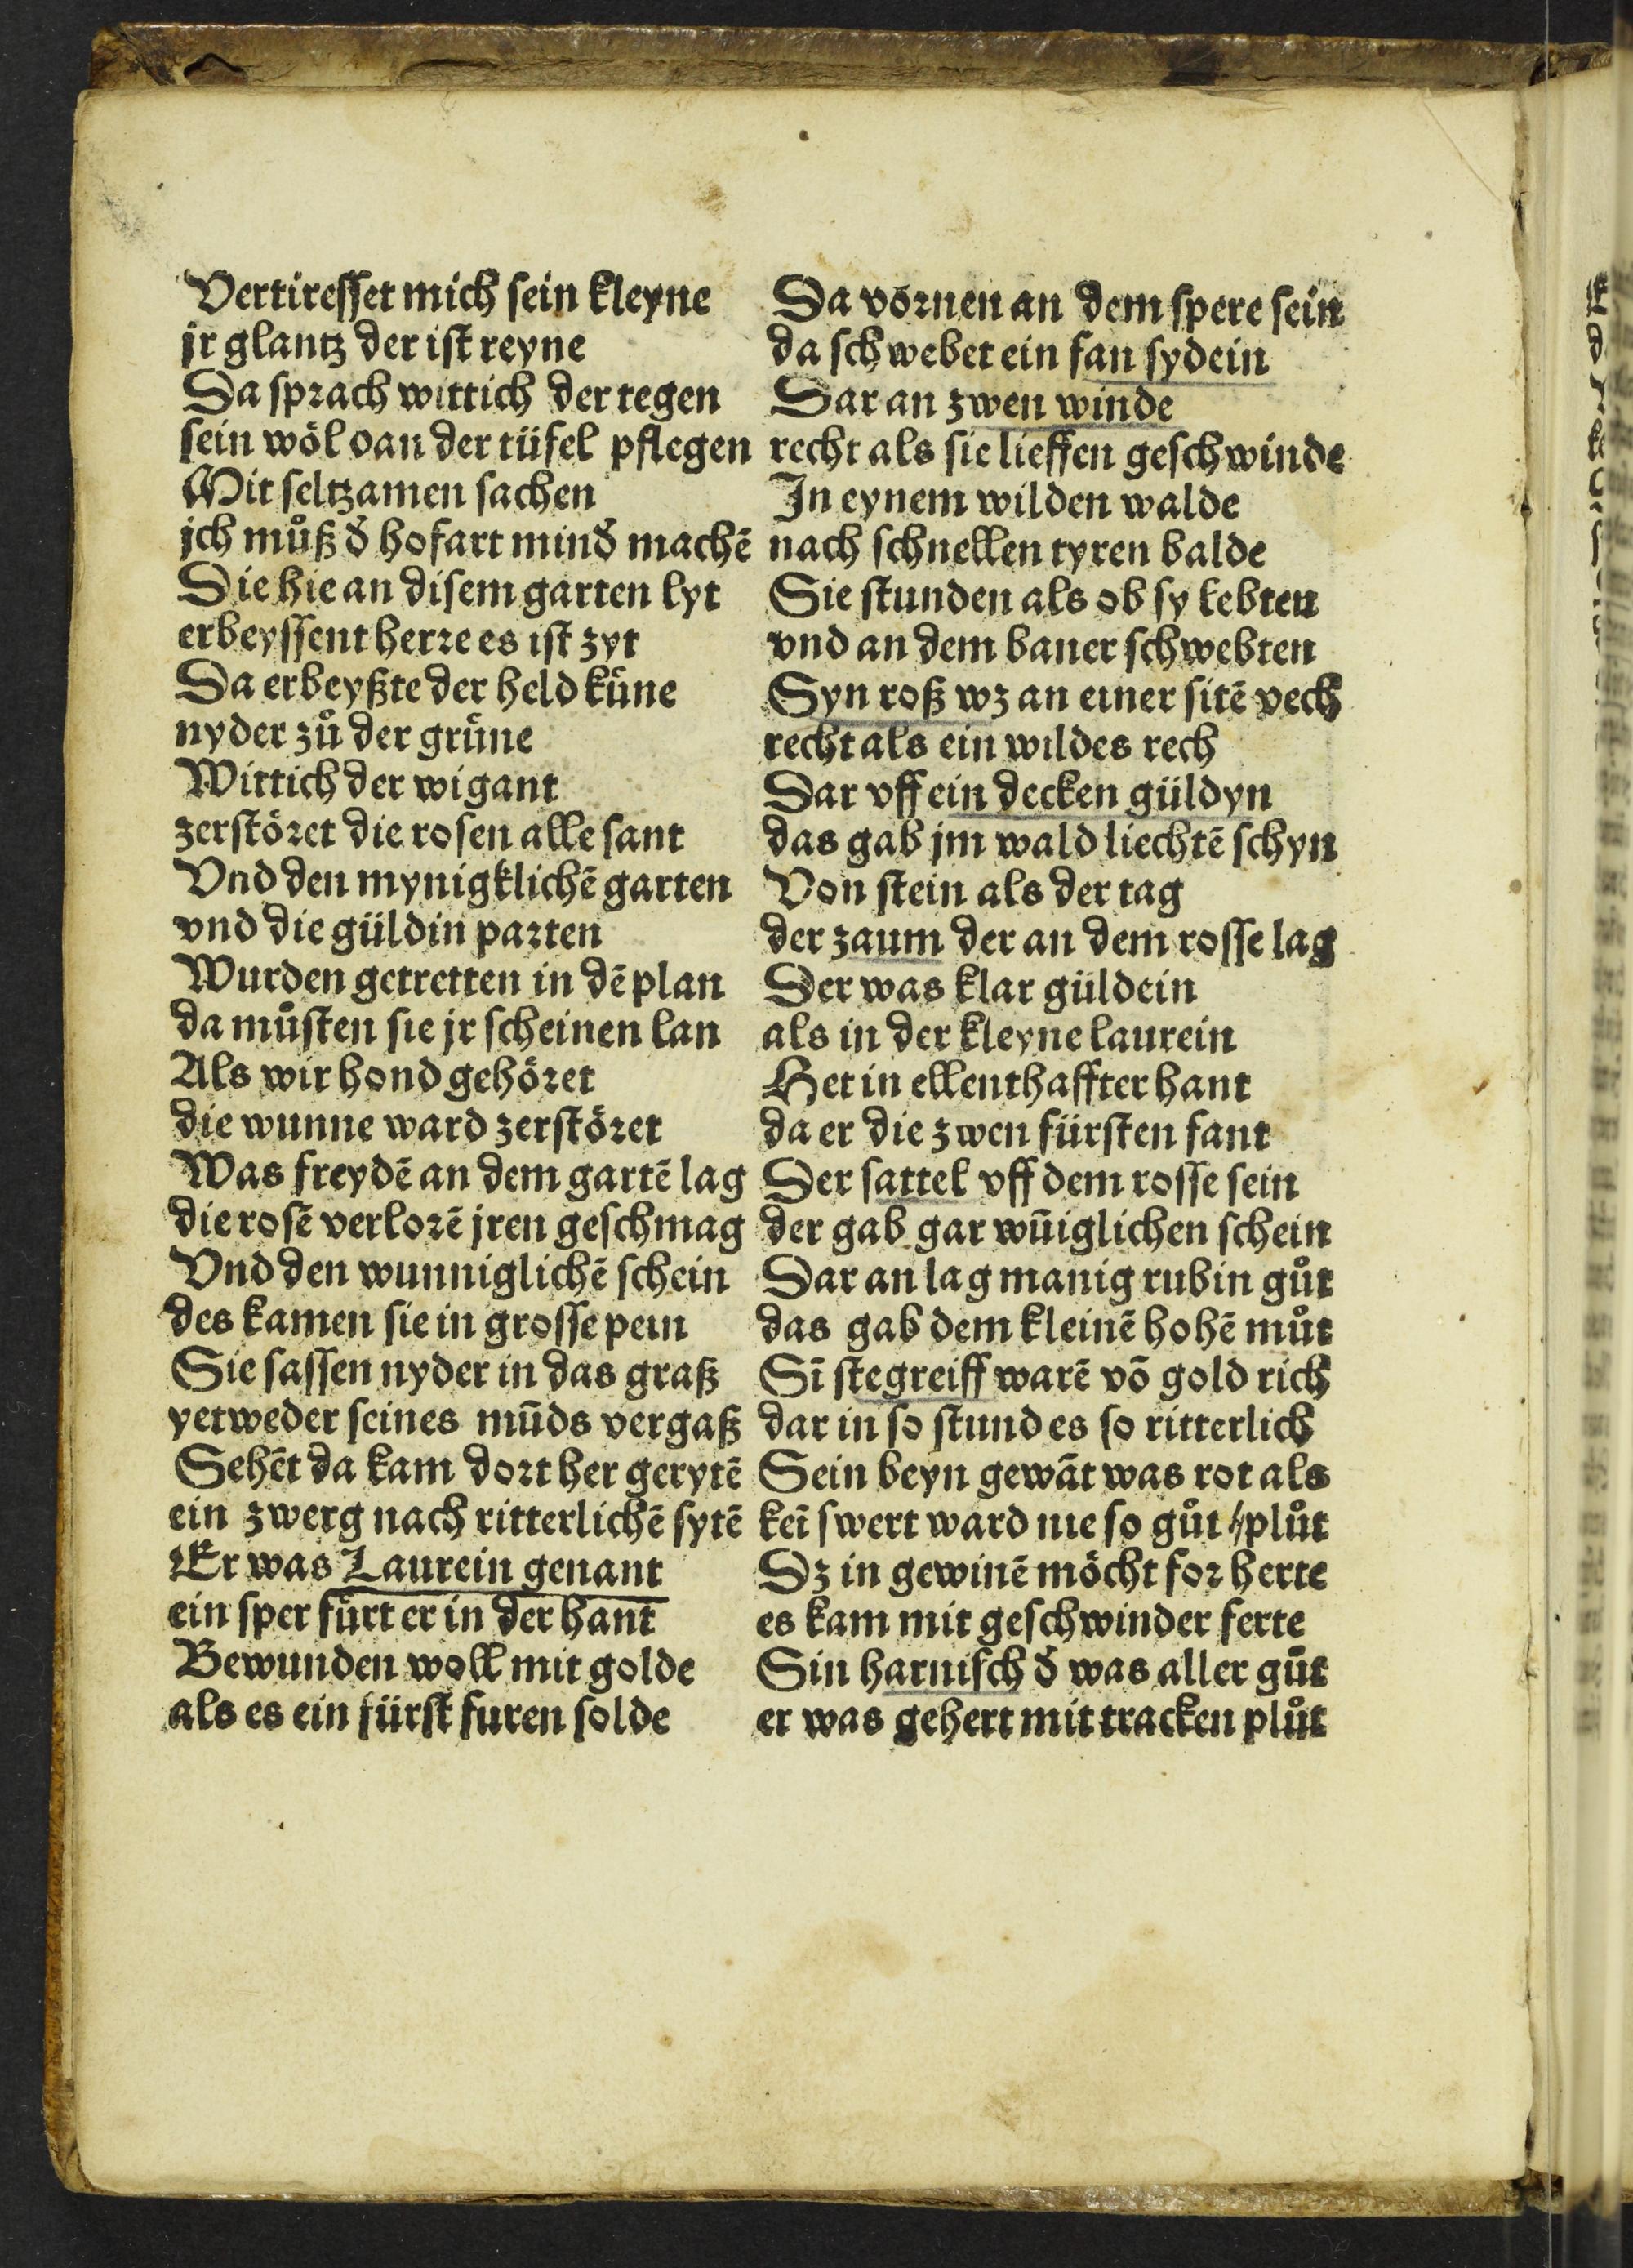 Vertiresset mich sein kleyne
jr glantz der ist reyne
Da sprach wittich der tegen
sein wöl oan der tüfel pflegen
Mit seltzamen sachen
jch můß d̕ hofart mind̕ machē
Die hie an disem garten lyt
erbeyssent herre es ist zyt
Da erbeyßte der held küne
nyder zů der grüne
Wittich der wigant
zerstöret die rosen alle sant
Vnd den mynigklichē garten
vnd die güldin parten
Wurden getretten in dē plan
da můsten sie jr scheinen lan
Als wir hond gehöret
die wunne ward zerstöret
Was freydē an dem gartē lag
die rosē verlorē jren geschmag
Vnd den wunniglichē schein
des kamen sie in grosse pein
Sie sassen nyder in das graß
yetweder seines mūds vergaß
Sehēt da kam dort her gerytē
ein zwerg nach ritterlichē sytē
Er was Laurein genant
ein sper fürt er in der hant
Bewunden woll mit golde
als es ein fürst furen solde
Da vornen an dem spere sein
da schwebet ein fan sydein
Dar an zwen winde
recht als sie lieffen geschwinde
In eynem wilden walde
nach schnellen tyren balde
Sie stunden als ob sy lebten
vnd an dem baner schwebten
Syn roß wz an einer sitē vech
recht als ein wildes rech
Dar vff ein decken güldyn
das gab jm wald liechtē schyn
Von stein als der tag
der zaum der an dem rosse lag
Der was klar güldein
als in der kleyne laurein
Het in ellenthaffter hant
da er die zwen fürsten fant
Der sattel vff dem rosse sein
der gab gar wūiglichen schein
Dar an lag manig rubin gůt
das gab dem kleinē hohē můt
Sī stegreiff warē vō gold rich
dar in so stund es so ritterlich
Sein beyn gewāt was rot als
keī swert ward nie so gůt plůt
Dz in gewinē möcht for herte
es kam mit geschwinder ferte
Sin harnisch d̕ was aller gůt
er was gehert mit tracken plůt